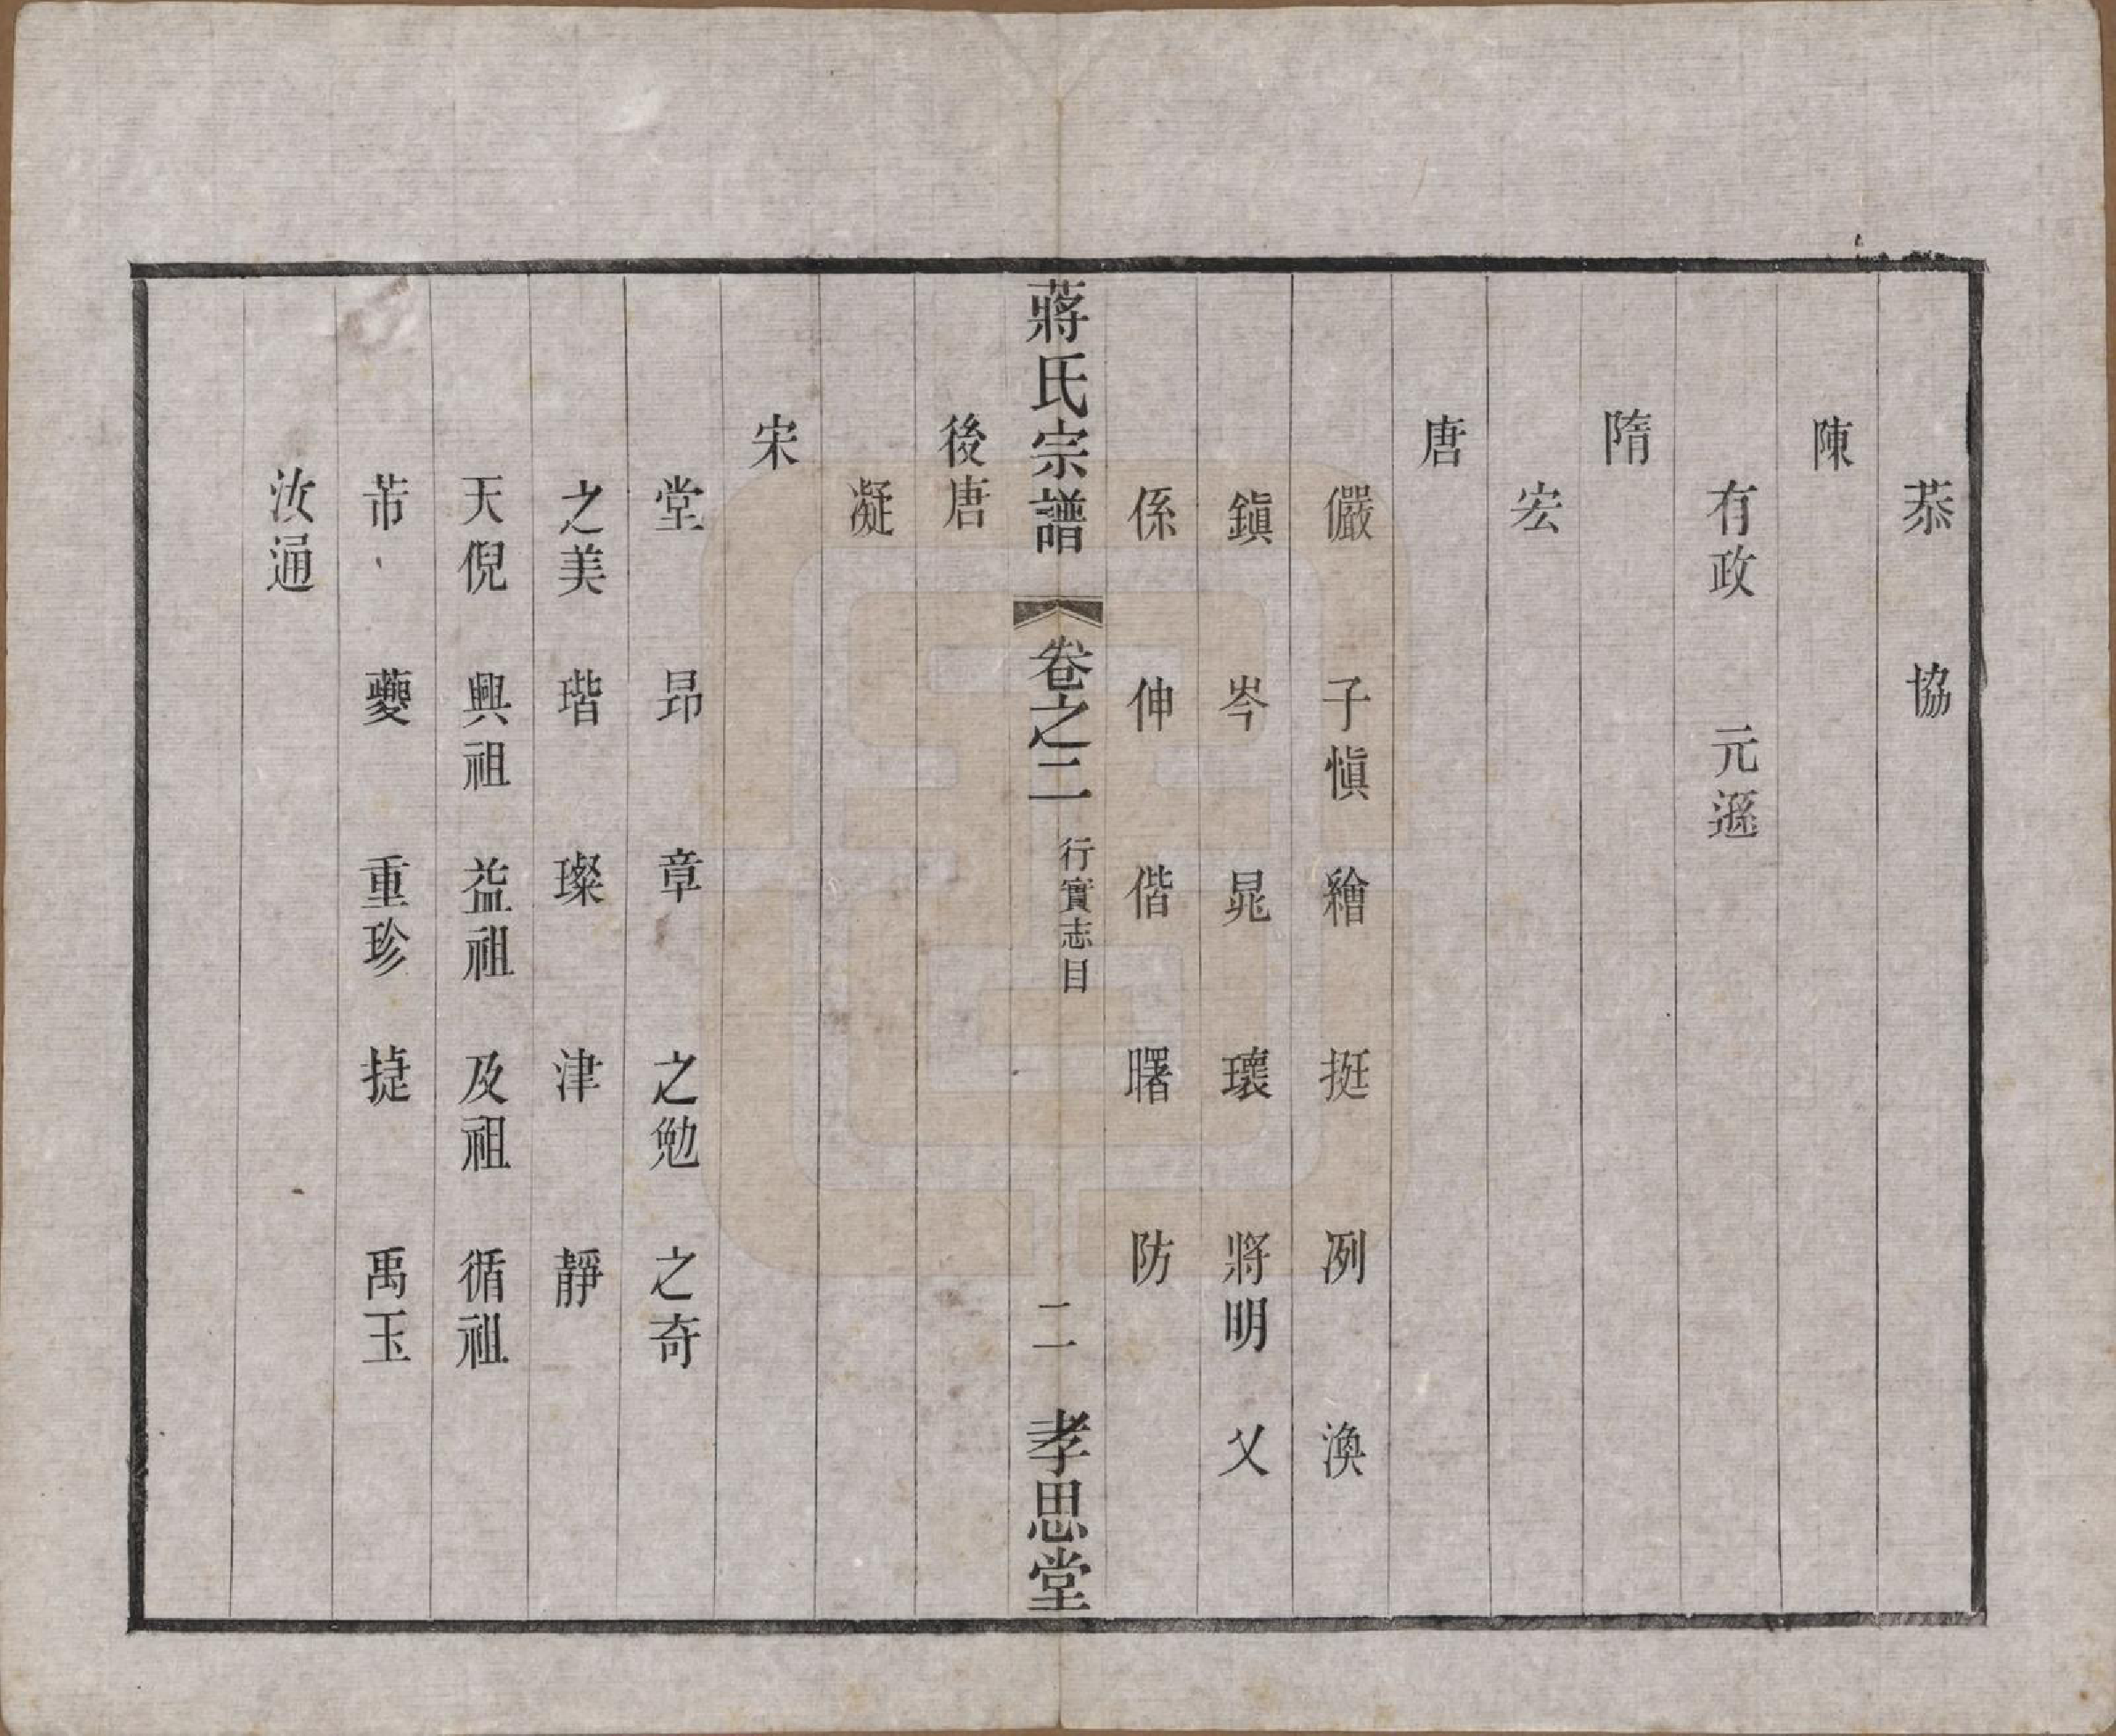 恭　協
陳
有政　元遜
隋
宏
唐
儼　子慎　繪　挺　冽　渙
鎮　岑　晁　瓌　將明　乂
係　伸　偕　曙　防
蔣氏宗譜　卷之二　行實志目　二　孝思堂
後唐
凝
宋
堂　昂　章　之勉　之奇
之美　瑎　璨　津　靜
天倪　興祖　益祖　及祖　循祖
芾　夔　重珍　捷　禹玉
汝通